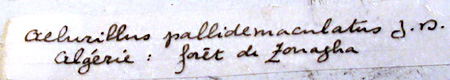 aelurillus pallidemaculatus J. D.
Algérie : forêt de Zonagha